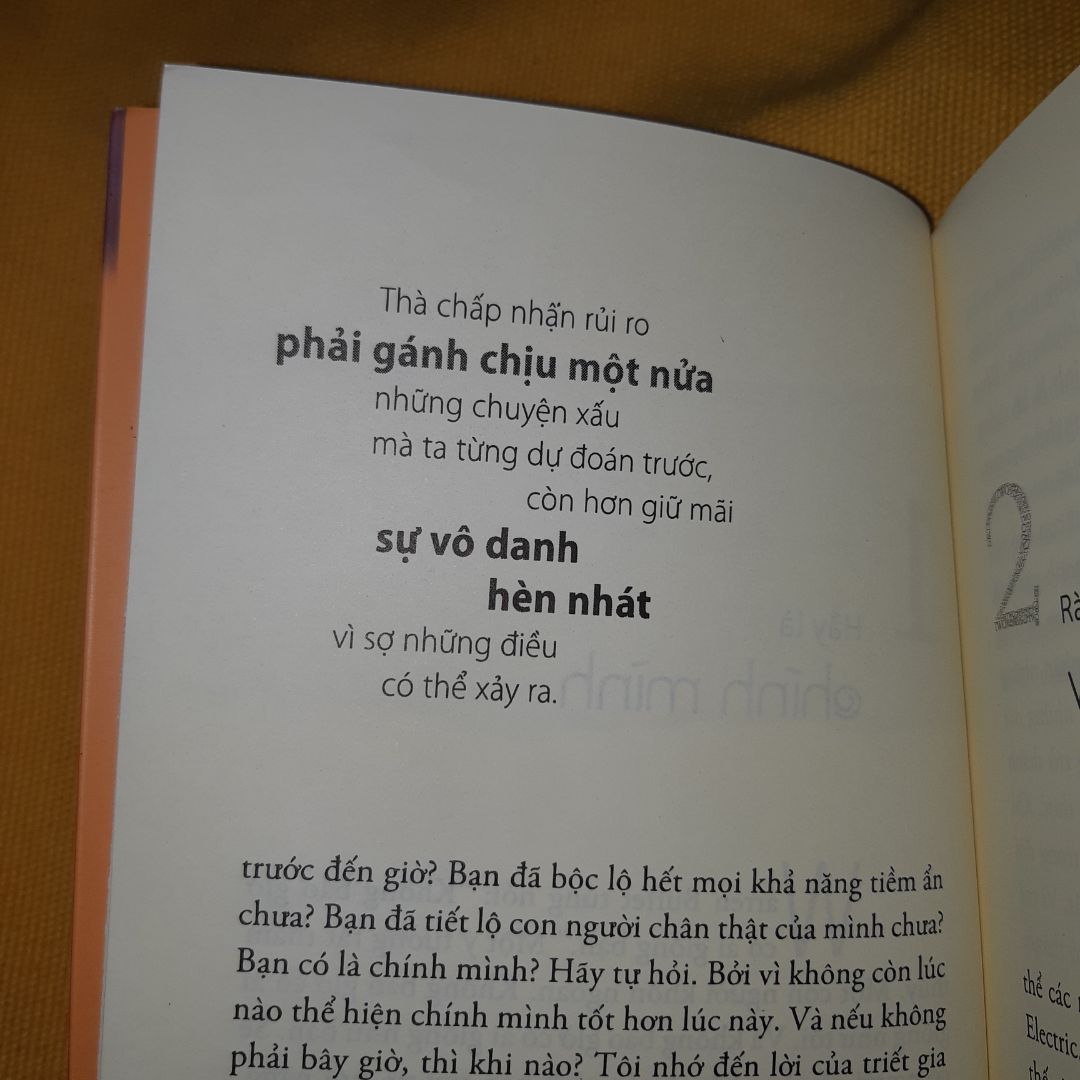 Thà chấp nhận rủi ro
phải gánh chịu một nửa
những chuyện xấu
mà ta từng dự đoán trước,
còn hơn giữ mãi
sự vô danh
hèn nhát
vì sợ những điều
có thể xảy ra.
trước đến giờ? Bạn đã bộc lộ hết mọi khả năng tiềm ẩn
chưa? Bạn đã tiết lộ con người chân thật của mình chưa?
Bạn có là chính mình? Hãy tự hỏi. Bởi vì không còn lúc
nào thể hiện chính mình tốt hơn lúc này. Và nếu không
phải bây giờ, thì khi nào? Tôi nhớ đến lời của triết gia
2
thể các
Electric,
thế